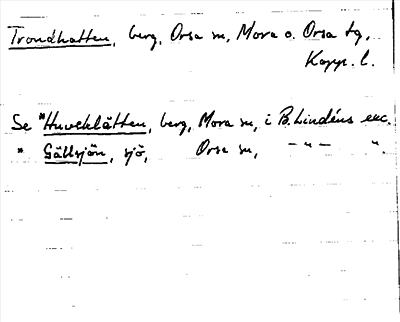 Trondhatten, berg, Orsa sn, Mora o. Orsa tg,
Kopp. l.
Se *Huvklätten, berg, Mora sn, i B. Lindéns exc.
* Gällsjön, sjö, Orsa sn, -"- ".